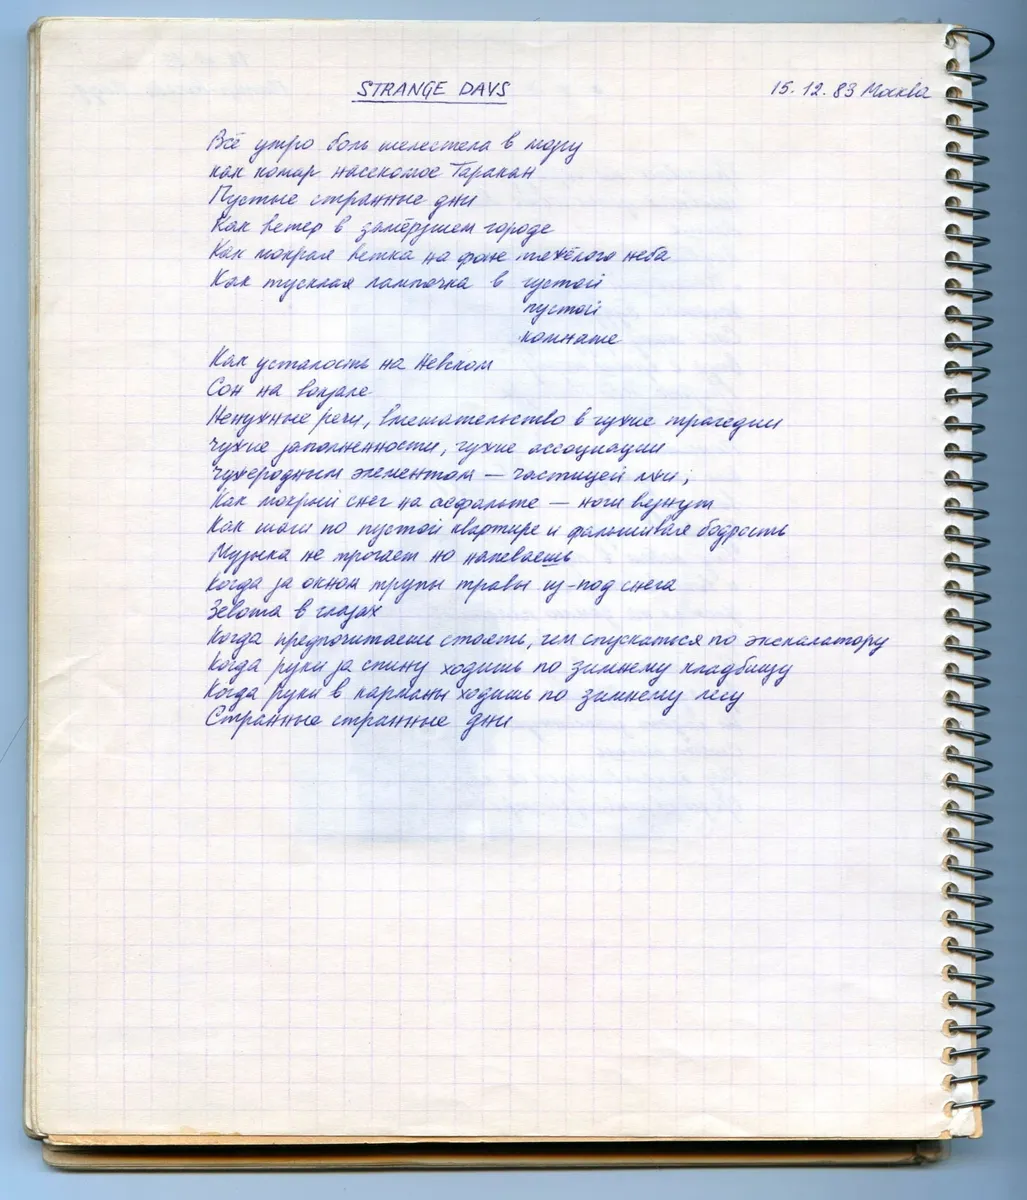 STRANGE DAYS
15.12.83 Москва
Всё утро боль шелестела в мозгу
как комар насекомое Таракан
Пустые странные дни
Как ветер в замёрзшем городе
Как мокрая ветка на фоне тяжёлого неба
Как тусклая лампочка в густой
пустой
комнате
Как усталость на Невском
Сон на вокзале
Ненужные речи, вмешательство в чужие трагедии
чужие заполненности, чужие ассоциации
чужеродным элементом — частицей лжи;
Как мокрый снег на асфальте — ноги вязнут
Как шаги по пустой квартире и фальшивая бодрость
Музыка не трогает но напеваешь
Когда за окном трупы травы из-под снега
Зевота в глазах
Когда предпочитаешь стоять, чем спускаться по эскалатору
Когда руки за спину ходишь по зимнему кладбищу
Когда руки в карманы ходишь по зимнему лесу
Странные странные дни